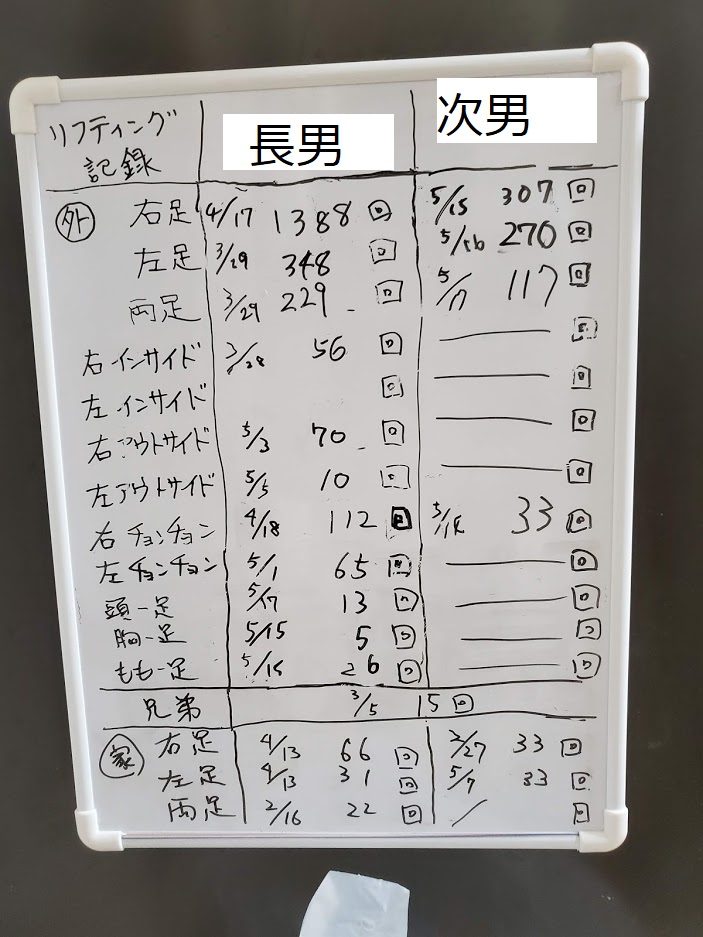 リフティング記録 長男 次男
外 右足 4/17 1388回 5/15 307回
左足 3/29 348回 5/16 270回
両足 3/29 229回 5/17 117回
右インサイド 3/28 56回 回
左インサイド 回 回
右アウトサイド 5/3 70回 回
左アウトサイド 5/5 10回 回
右チョンチョン 4/18 112回 33回
左チョンチョン 5/1 65回 回
頭-足 5/17 13回 回
胸-足 5/15 5回 回
もも-足 5/15 26回 回
兄弟 3/5 15回
家 右足 4/13 66回 2/27 33回
左足 4/13 31回 5/7 33回
両足 2/16 22回 / 回